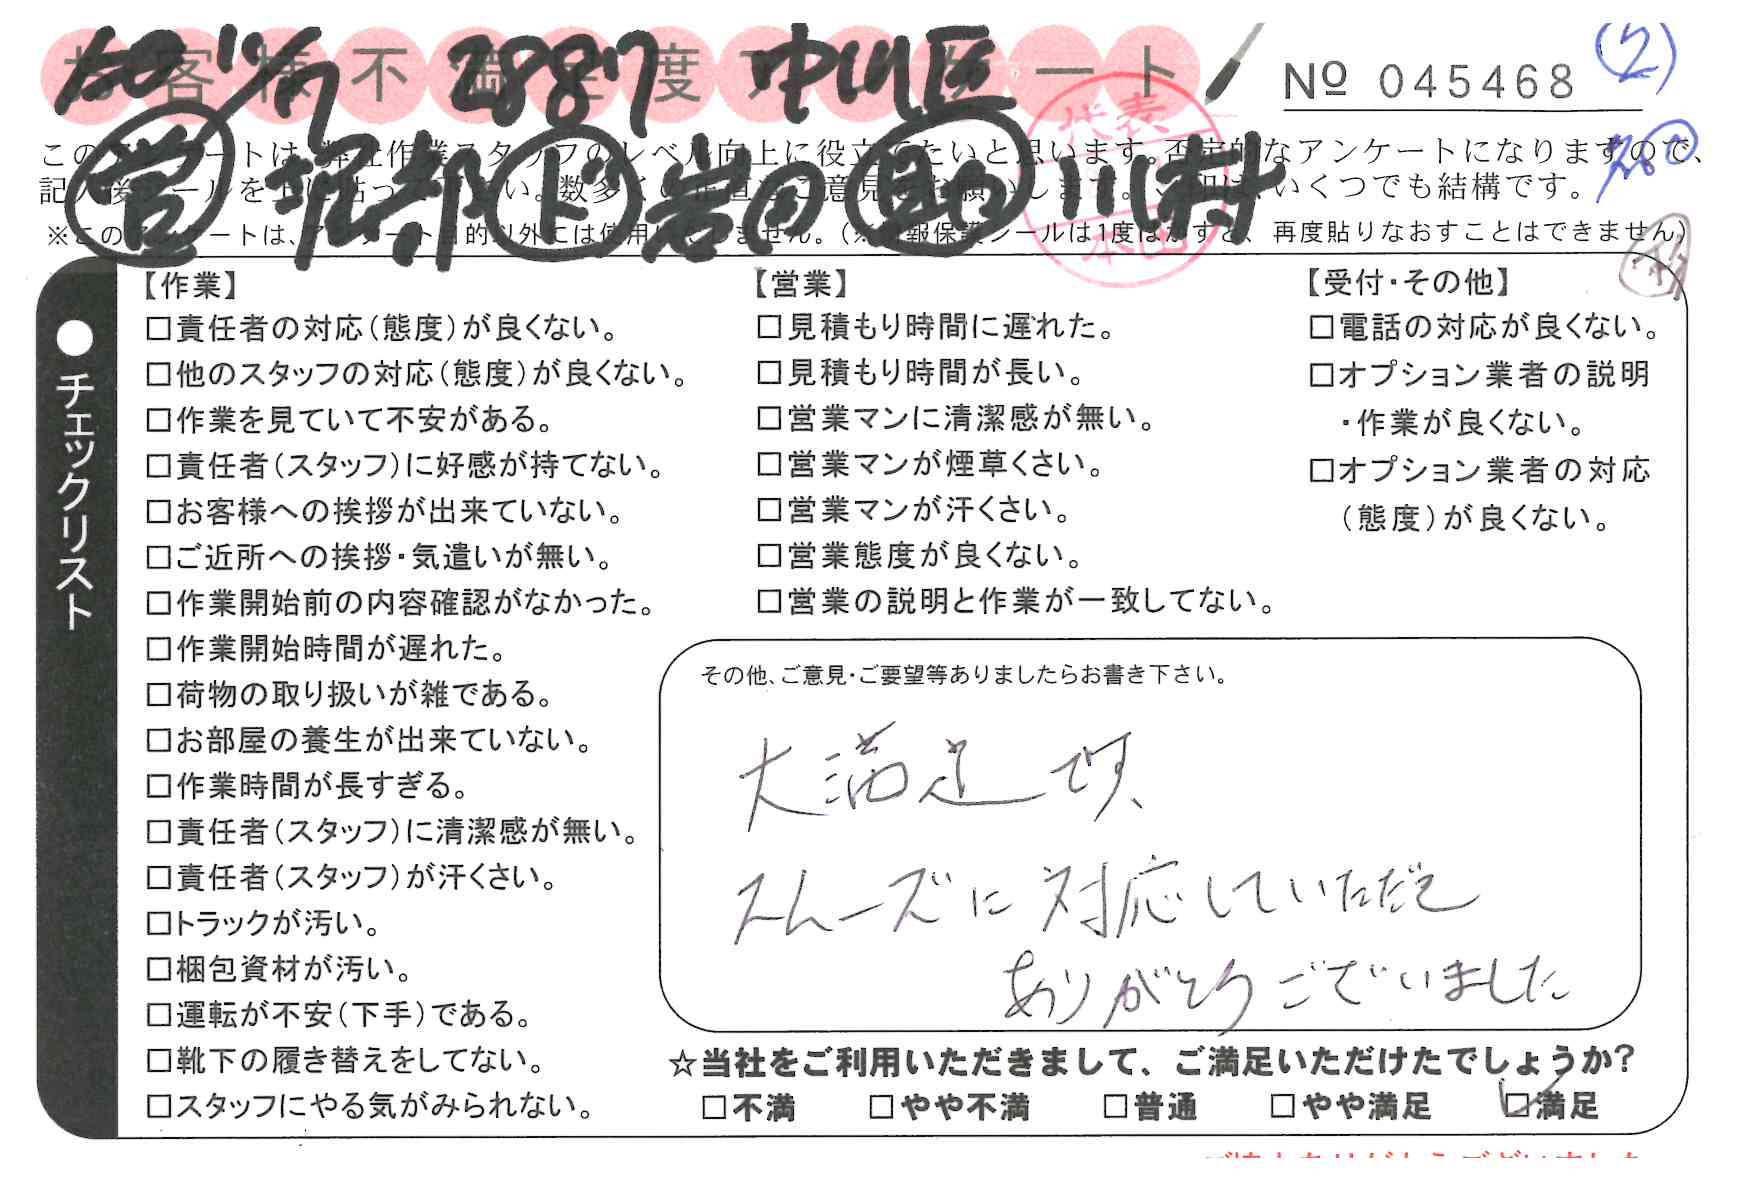 お客様不満足度アンケート
2887 中川区
№ 045468 (2)
このアンケートは、弊社作業スタッフのレベル向上に役立てたいと思います。否定的なアンケートになりますので、
記入後シールを上に貼って下さい。数多くの正直なご意見をお願いします。いくつでも結構です。
営 堀部 ド 岩田 助 川村
代表
本
※このアンケートは、アンケート目的以外には使用いたしません。(※情報保護シールは1度はがすと、再度貼りなおすことはできません)
●チェックリスト
【作業】
□責任者の対応(態度)が良くない。
□他のスタッフの対応(態度)が良くない。
□作業を見ていて不安がある。
□責任者(スタッフ)に好感が持てない。
□お客様への挨拶が出来ていない。
□ご近所への挨拶・気遣いが無い。
□作業開始前の内容確認がなかった。
□作業開始時間が遅れた。
□荷物の取り扱いが雑である。
□お部屋の養生が出来ていない。
□作業時間が長すぎる。
□責任者(スタッフ)に清潔感が無い。
□責任者(スタッフ)が汗くさい。
□トラックが汚い。
□梱包資材が汚い。
□運転が不安(下手)である。
□靴下の履き替えをしてない。
□スタッフにやる気がみられない。
【営業】
□見積もり時間に遅れた。
□見積もり時間が長い。
□営業マンに清潔感が無い。
□営業マンが煙草くさい。
□営業マンが汗くさい。
□営業態度が良くない。
□営業の説明と作業が一致してない。
【受付・その他】
□電話の対応が良くない。
□オプション業者の説明
・作業が良くない。
□オプション業者の対応
(態度)が良くない。
その他、ご意見・ご要望等ありましたらお書き下さい。
大満足です、
スムーズに対応していただき
ありがとうございました
☆当社をご利用いただきまして、ご満足いただけたでしょうか?
□不満 □やや不満 □普通 □やや満足 ☑満足
ご協力ありがとうございました